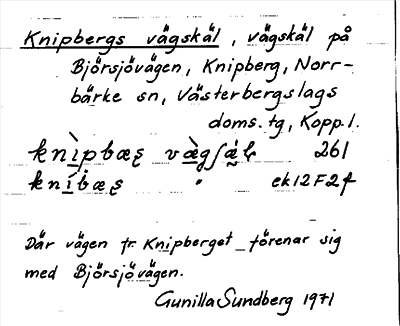 Knipbergs vägskäl, vägskäl på
Björsjövägen, Knipberg, Norr-
bärke sn, Västerbergslags
doms. tg, Kopp. l.
261
" ek12F2f
Där vägen fr. Knipberget förenar sig
med Björsjövägen.
Gunilla Sundberg 1971